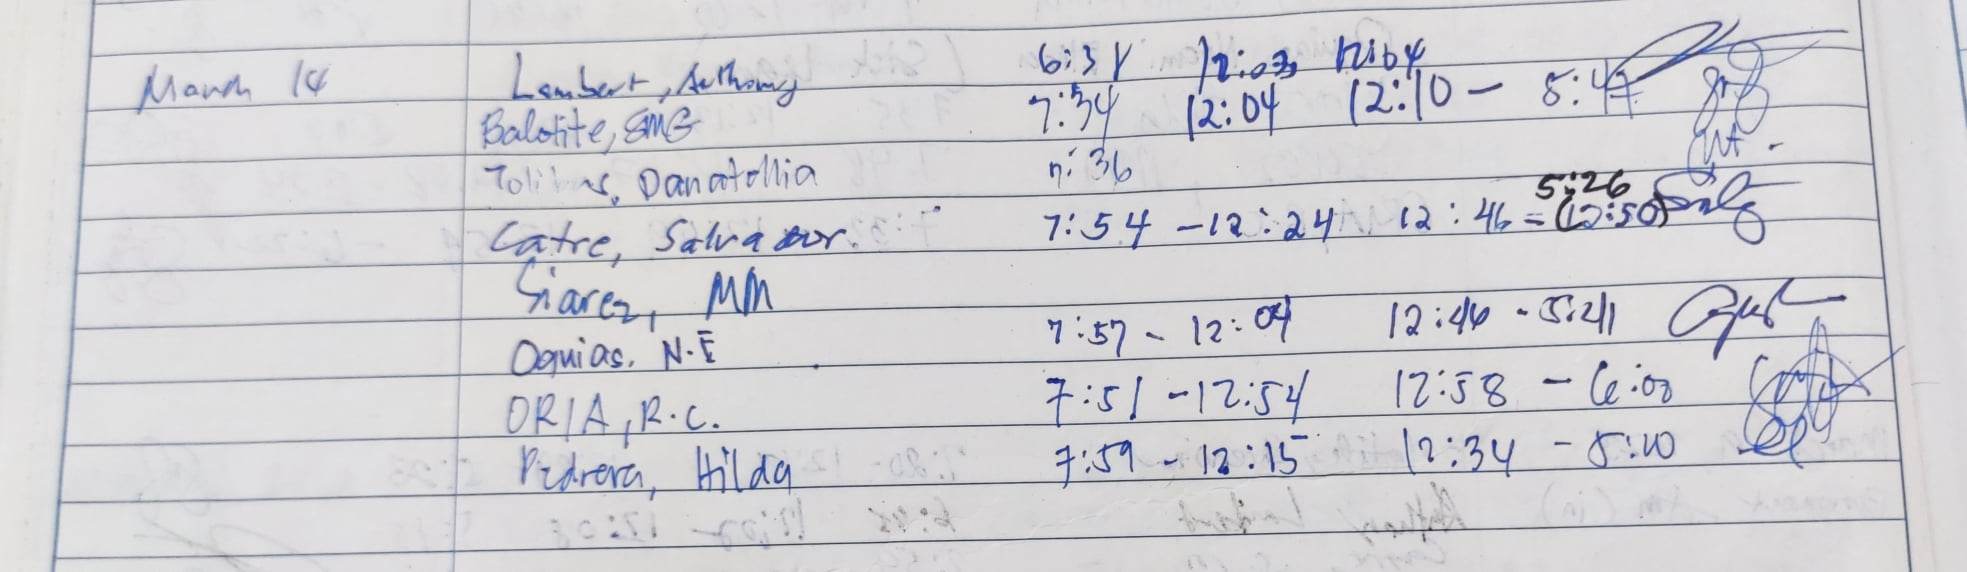 March 14 Lambert, Anthony 6:31 12:03 12:04
Balotite, SMG 7:34 12:04 12:10 - 5:47
Danatollia 7:36
Catre, Salvador. 7:54 - 12:24 12:46 = (12:50) 5:26
Siarez, MM
Oquias, N.E 7:57 - 12:04 12:46 - 5:41
ORIA, R.C. 7:51 - 12:54 12:58 - 6:02
Pedrera, Hilda 7:59 - 12:15 12:34 - 5:10